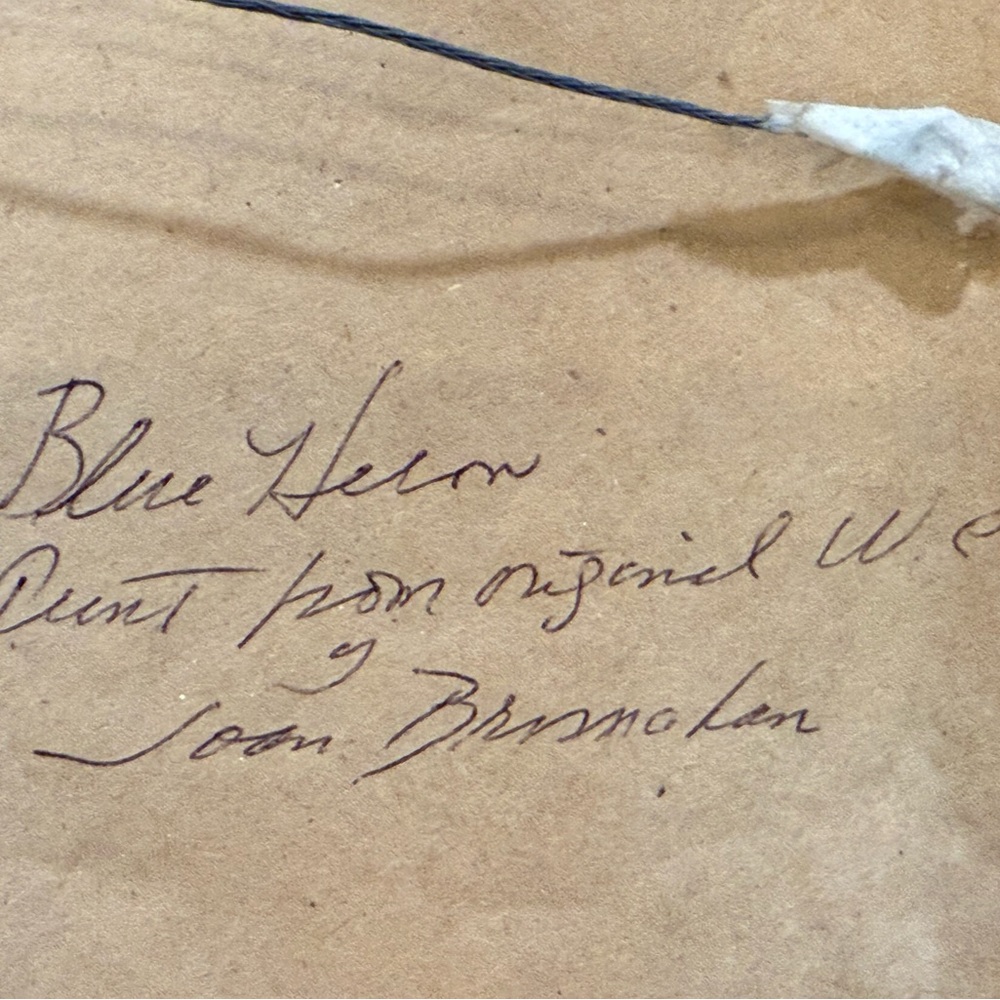 Blue Heron
Print from original W.C
by
Joan Brosnahan